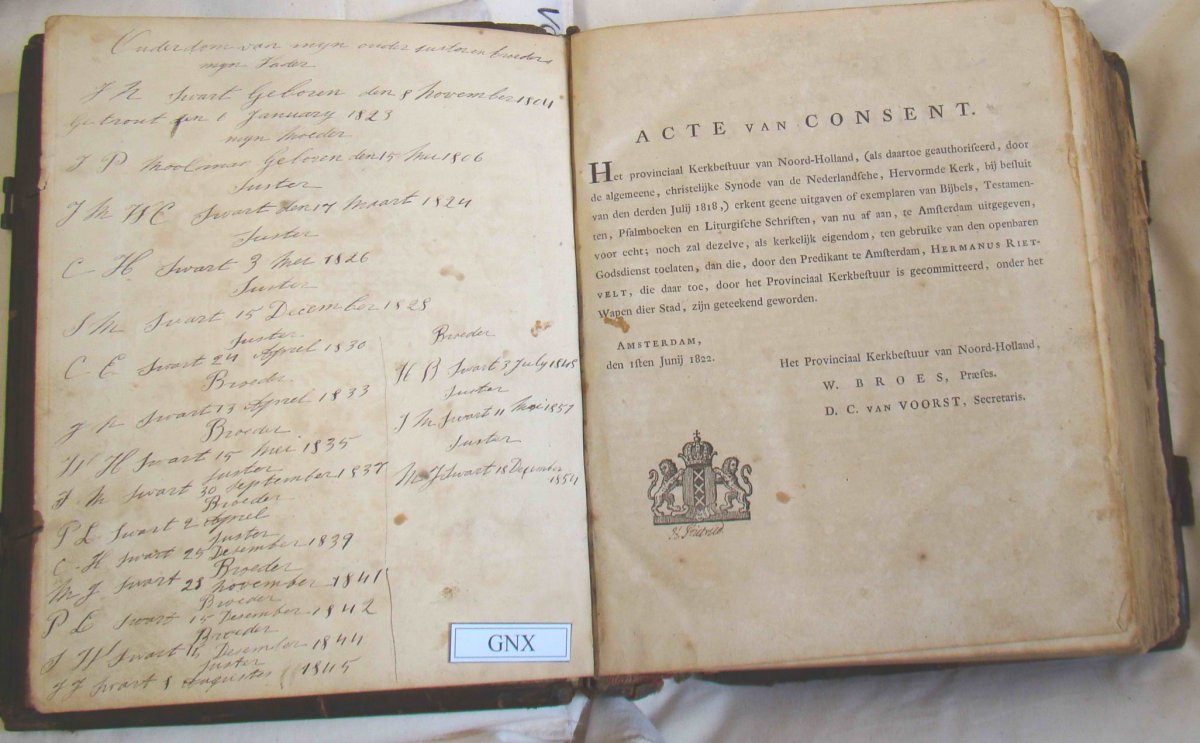 Ouderdom van mijn ouder susters en broeders
mijn Vader
Swart Geboren den 8 November 1801
Getrout den 1 January 1823
mijn Moeder
Geboren den 15 Mei 1806
Suster
J M W C Swart den 17 Maart 1824
Suster
C H Swart 3 Mei 1826
Suster
S M Swart 15 December 1828
Suster
C E Swart 24 April 1830
Broeder
Swart 13 April 1833
Broeder
W H Swart 15 Mei 1835
Suster
Swart 30 September 1837
Broeder
P L Swart 2 April
Suster
C H Swart 25 December 1839
Broeder
M J Swart 28 November 1841
Broeder
P L Swart 15 Desember 1842
Broeder
S W Swart Desember 1844
Suster
J J Swart 8 Augustes 1845
Broeder
H B Swart 3 July 1848
Suster
J M Swart 11 Mei
Suster
M J Swart 18 December
1854
GNX
ACTE VAN CONSENT.
Het provinciaal Kerkbeſtuur van Noord-Holland, (als daartoe geauthoriſeerd, door
de algemeene, christelijke Synode van de Nederlandſche, Hervormde Kerk, bij beſluit
van den derden Julij 1818,) erkent geene uitgaven of exemplaren van Bijbels, Testamen-
ten, Pſalmboeken en Liturgiſche Schriften, van nu af aan, te Amſterdam uitgegeven,
voor echt; noch zal dezelve, als kerkelijk eigendom, ten gebruike van den openbaren
Godsdienst toelaten, dan die, door den Predikant te Amſterdam, HERMANUS RIET-
VELT, die daar toe, door het Provinciaal Kerkbeſtuur is gecommitteerd, onder het
Wapen dier Stad, zijn geteekend geworden.
AMSTERDAM,
den 1ſten Junij 1822.
Het Provinciaal Kerkbeſtuur van Noord-Holland,
W. BROES, Præſes.
D. C. VAN VOORST, Secretaris.